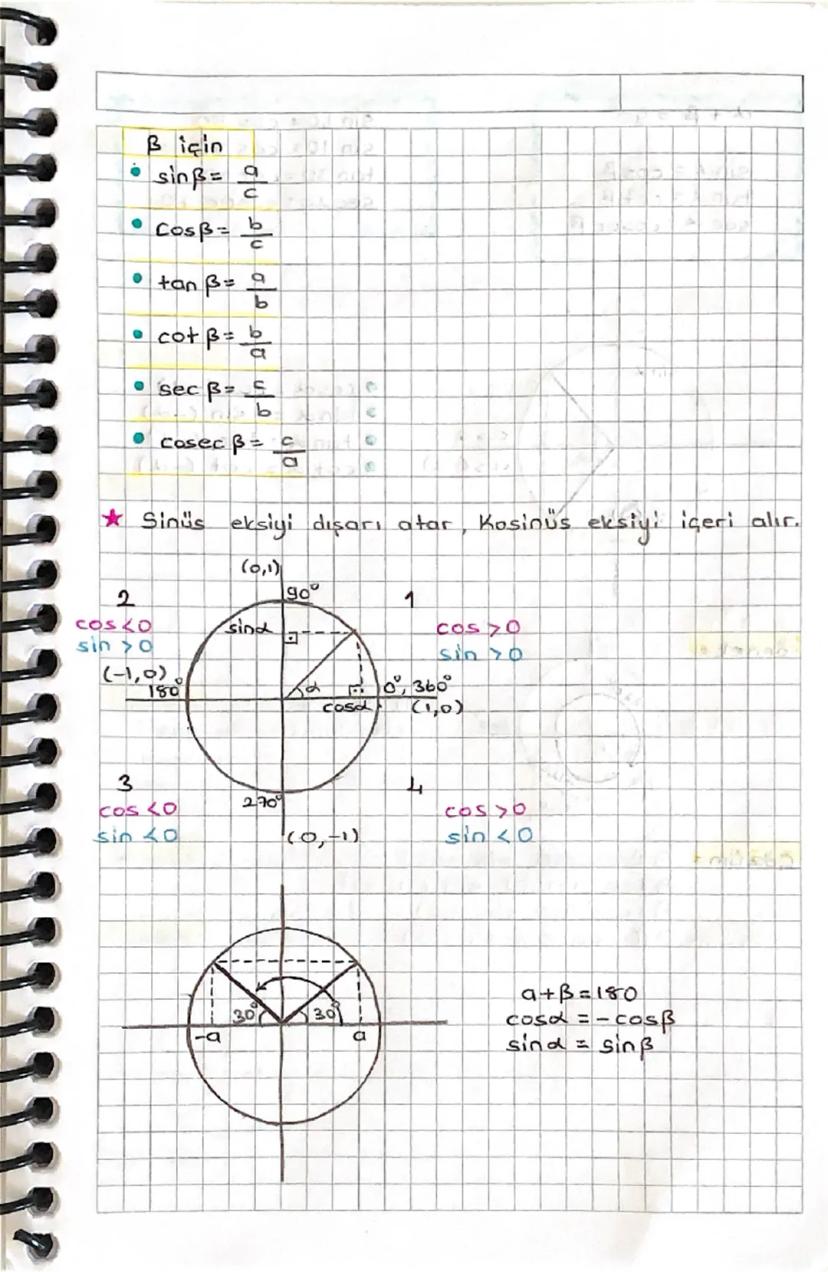 β için
• sinβ = a/c
• cosβ = b/c
• tanβ = a/b
• cotβ = b/a
• secβ = c/b
• cosecβ = c/a
★ Sinüs eksiyi dışarı atar, Kosinüs eksiyi içeri alır.
(0,1)
90°
2
cos<0
sin>0
1
cos>0
sin>0
sinα
(-1,0)
180°
α
0°, 360°
cosα
(1,0)
3
cos<0
sin<0
270°
(0,-1)
4
cos>0
sin<0
30°
30°
-a
a
a+β=180
cosα = -cosβ
sinα = sinβ